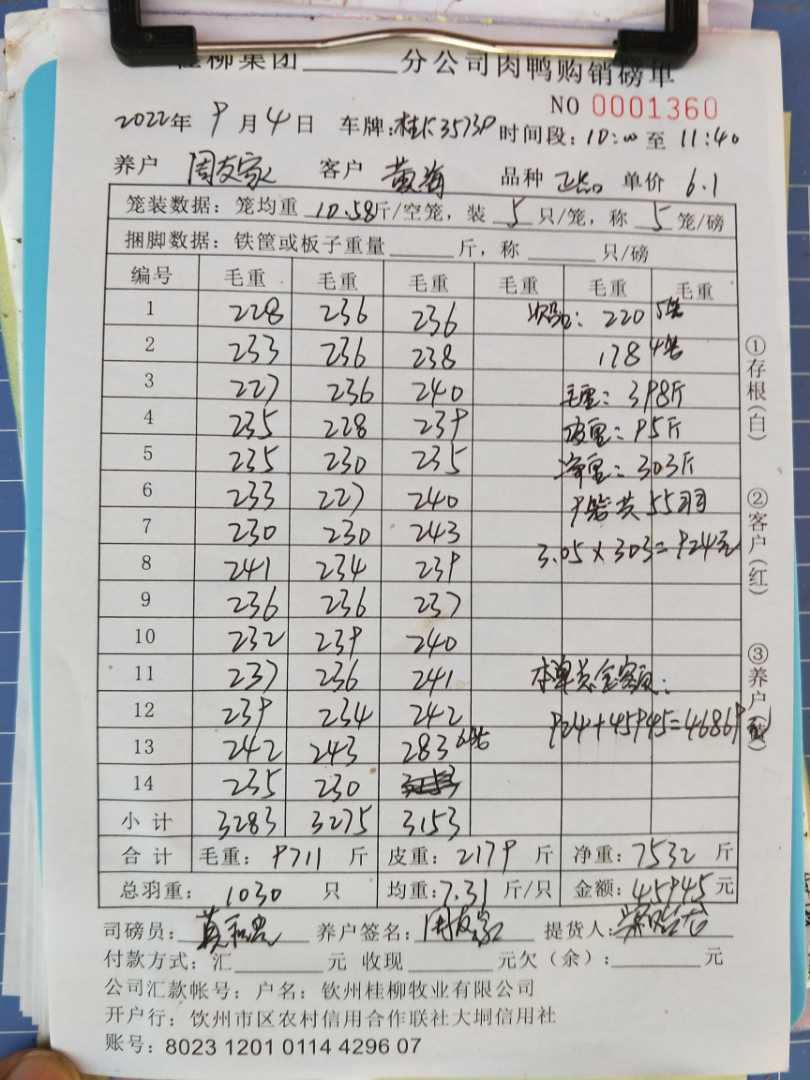 桂柳集团______分公司肉鸭购销磅单
NO 0001360
2022年 9月4日 车牌:桂K3573P 时间段:10:00至11:40
养户 周友家 客户 黄海 品种 正品 单价 6.1
笼装数据:笼均重 10.58斤/空笼,装 5 只/笼,称 5 笼/磅
捆脚数据:铁筐或板子重量______斤,称______只/磅
编号 毛重 毛重 毛重 毛重 毛重 毛重
1 228 236 236 次品: 220 5笼
2 233 236 238 178 4笼
3 227 236 240 毛重: 398斤
4 235 228 239 皮重: 95斤
5 235 230 235 净重: 303斤
6 233 227 240 9笼共55羽
7 230 230 243
8 241 234 239 3.05×303=924元
9 236 236 237
10 232 239 240
11 237 236 241 本单总金额:
12 239 234 242 924+45945=46869元
13 242 243 283 6笼
14 235 230
小计 3283 3275 3153
合计 毛重:9711斤 皮重:2179斤 净重:7532斤
总羽重:1030 只 均重:7.31斤/只 金额:45945元
司磅员: 养户签名:周友家 提货人:
付款方式:汇______元 收现______元欠(余):______元
公司汇款帐号:户名:钦州桂柳牧业有限公司
开户行:饮州市区农村信用合作联社大垌信用社
账号:8023 1201 0114 4296 07
①存根(白) ②客户(红) ③养户